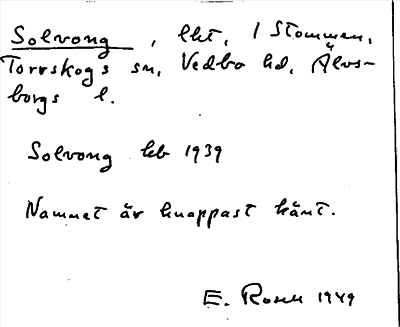 Solvong, lht, / Stommen,
Torrskogs sn, Vedbo hd, Älvs-
borgs l.
Solvong kb 1939
Namnet är knappast känt.
E. Rosell 1949